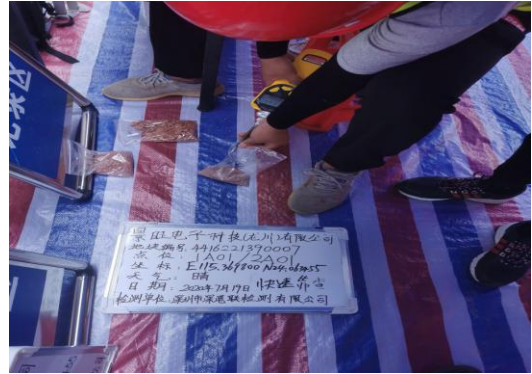 景旺电子科技(龙川)有限公司
地块编号:4416221390007
点位:1A01/2A01
坐标:E115.369800 N24.06
天气:晴
日期:2020年7月19日 快速筛
检测单位:深圳市深港联检测有限公司